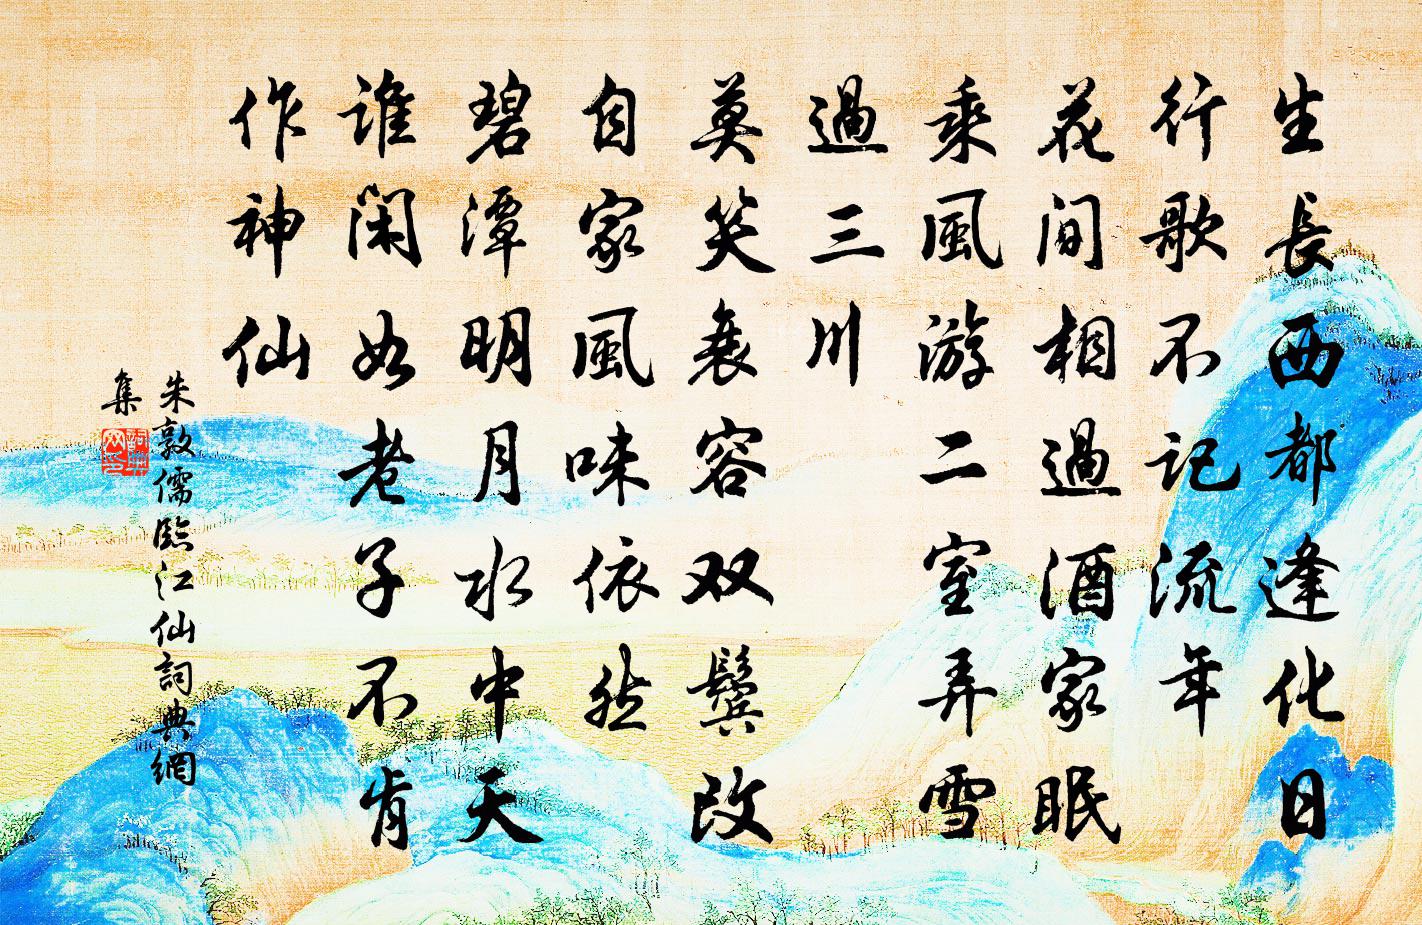 生長西都逢化日
行歌不記流年
花间相過酒家眠
乘風游二室弄雪
過三川
莫笑衰容双鬓改
自家風味依然
碧潭明月水中天
谁闲如老子不肯
作神仙
朱敦儒臨江仙詞典網
集